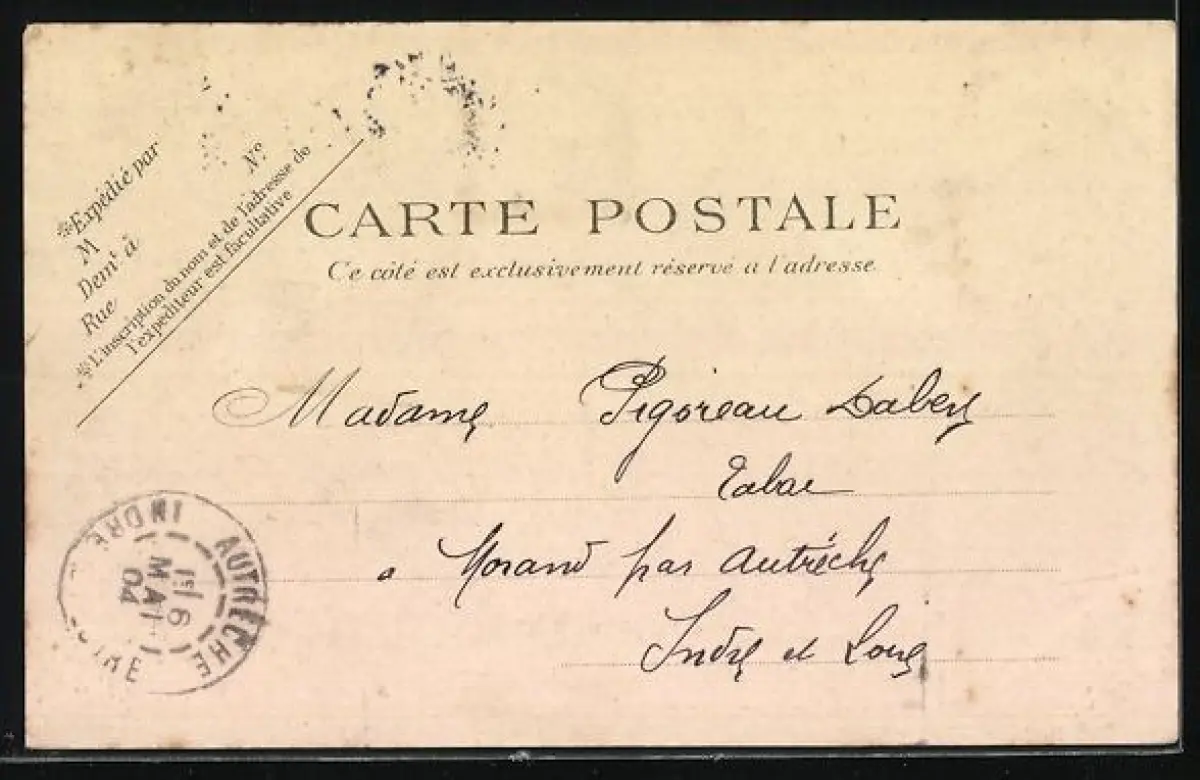 *Expédié par
M
Demt à
Rue
Nº
*L'inscription du nom et de l'adresse de
l'expéditeur est facultative
CARTE POSTALE
Ce côté est exclusivement réservé a l'adresse
Madame Pigoreau
Tabac
a Morand par Autrèche
Indre et Loire
AUTRECHE
INDRE
6
MAI
04